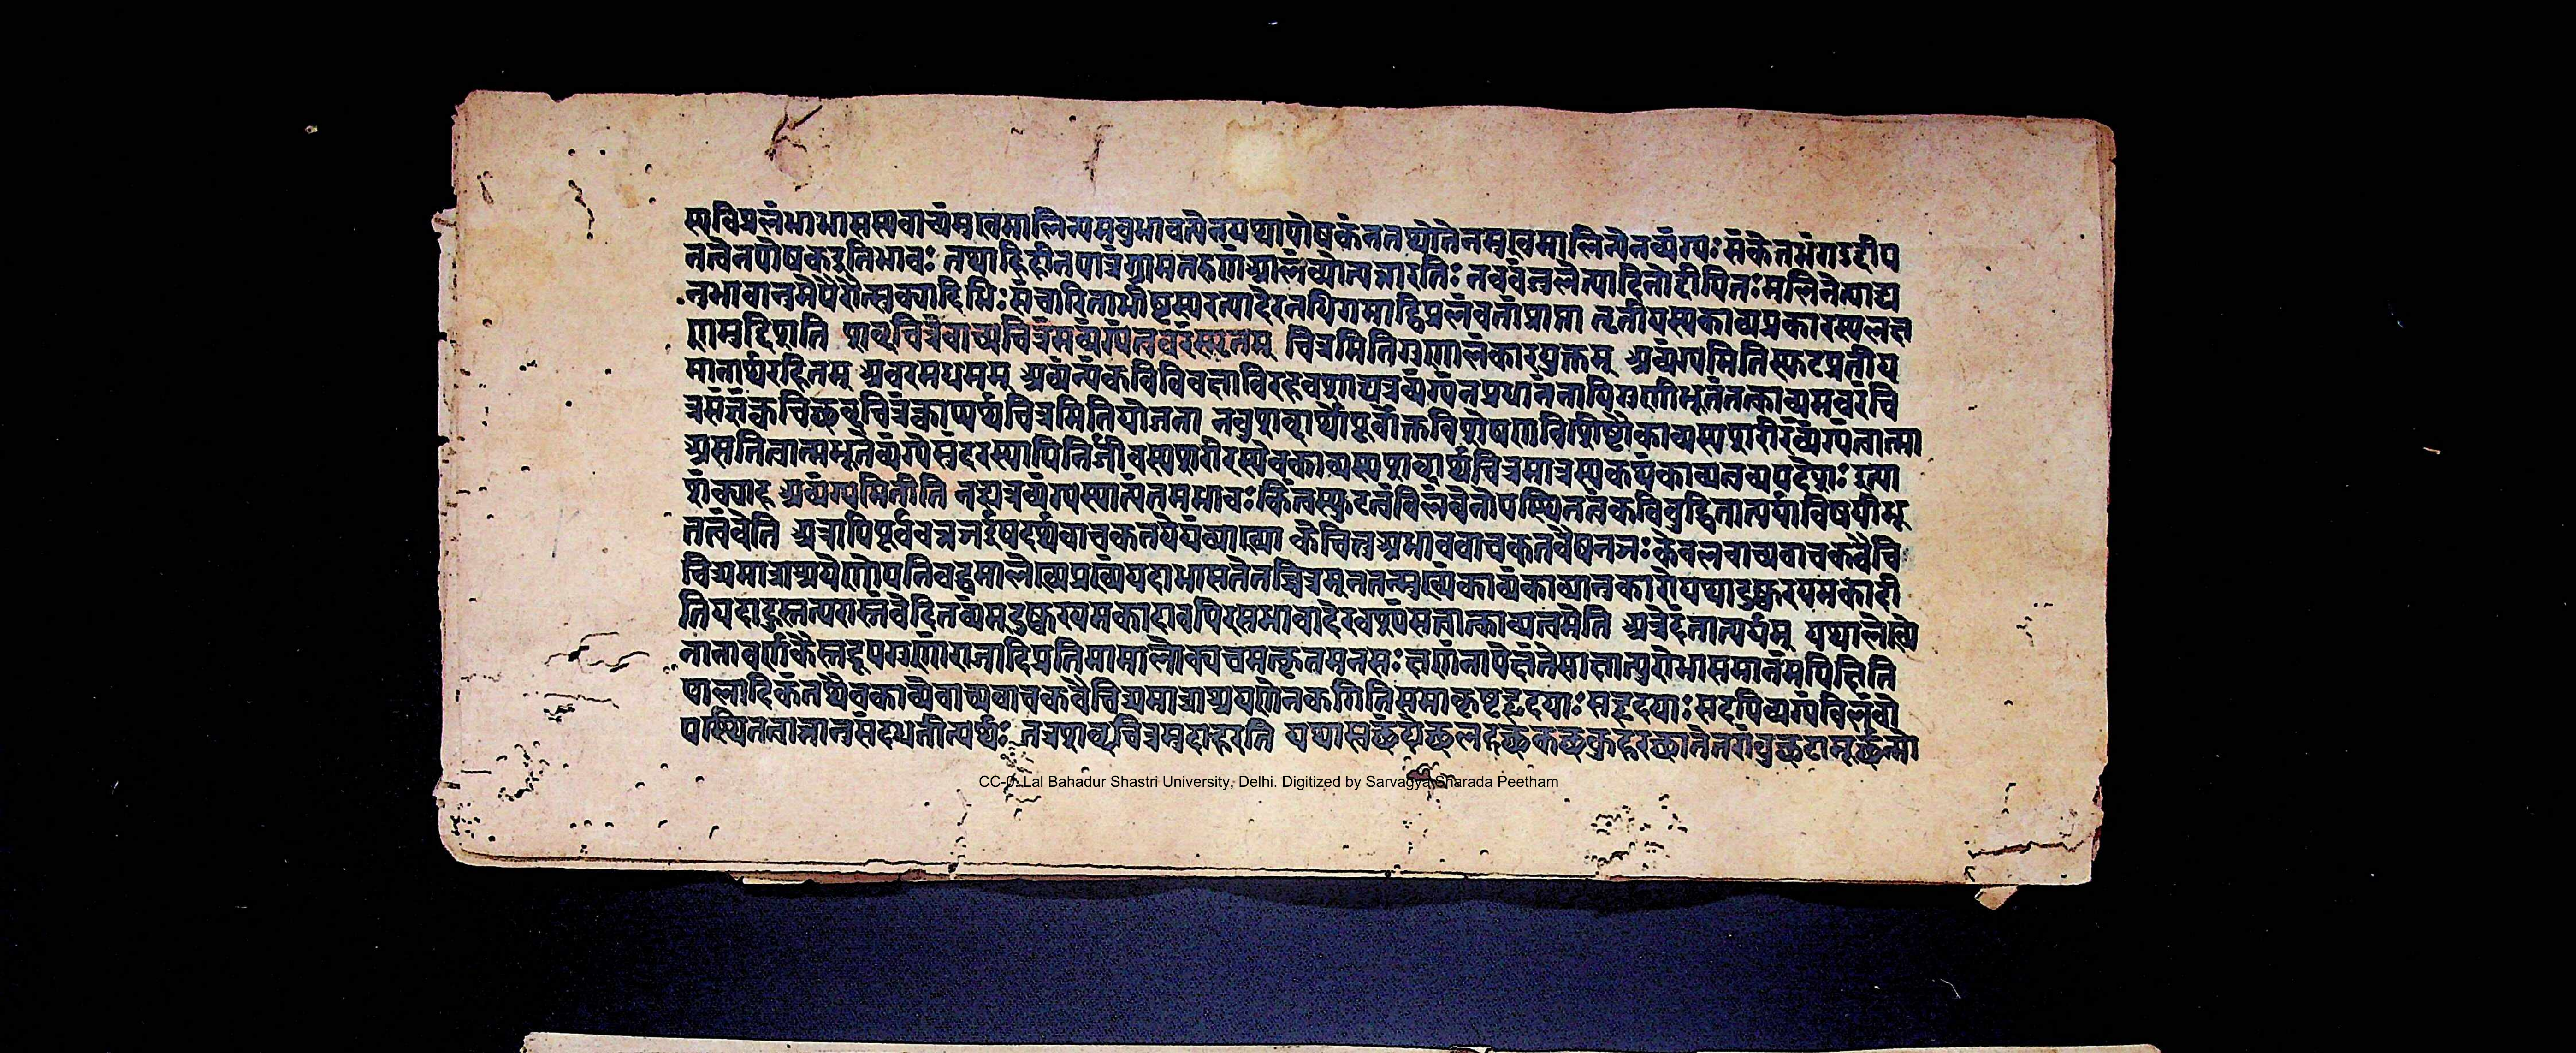 स्यविप्रलंभाभासस्यवाच्यंमुखमालिन्यमनुभावत्वेनयथापोषकंनतथातेनमुखमालिन्येनव्यंग्यः संकेतभंगउद्दीप
नत्वेनपोषकइतिभावः तथाहिहीनपात्रंग्रामतरुणंआलंब्योत्पन्नारतिः नववंजुलेत्यादिनोद्दीपितः मलिनेत्याद्य
नुभावानुमेयैरौत्सुक्यादिभिः संचारिताभीष्टस्यरत्यादेरनधिगमाद्विप्रलंबतांप्राप्ता तृतीयस्यकाव्यप्रकारस्यलक्ष
णमुद्दिशति शब्दचित्रंवाच्यचित्रंमव्यंग्यंत्ववरंस्मृतम् चित्रमितिगुणालंकारयुक्तम् अव्यंग्यमितिस्फुटप्रतीय
मानार्थरहितम् अवरमधमम् अव्यंग्यंकविविवक्षाविरहवशाद्यत्रव्यंग्यंनप्रधानंनापिगुणीभूतंतत्काव्यमवरंचि
त्रसंज्ञंक्वचिछब्दचित्रंक्वाप्यर्थचित्रमितियोजना ननुशब्दार्थौपूर्वोक्तविशेषणविशिष्टौकाव्यस्यशरीरंव्यंग्यंत्वात्मा
असतित्वात्मभूतेव्यंग्येसुंदरस्यापिनिर्जीवस्यशरीरस्येवकाव्यस्यशब्दार्थचित्रमात्रस्यकथंकाव्यत्वव्यपदेशः इत्या
शंक्याह अव्यंग्यमितीति नह्यत्रव्यंग्यस्यात्यंतमभावः किंत्वस्फुटत्वंविलंबेनोपस्थितत्वंकविबुद्धितात्पर्याविषयीभू
तत्वंवेति अत्रापिपूर्ववन्नञर्ईषदर्थवाचकतयेयंव्याख्या केचित्तुअभाववाचकतयैवनञः केवलवाच्यवाचकवैचि
चित्र्यमात्राश्रयेणोपनिबद्धमालेख्यप्रख्यंयदाभासतेतच्चित्रम्नतन्मुख्यंकाव्यंकाव्यानुकारोयथादुष्करयमकादी
तियदाहुस्तत्परास्तंवेदितव्यम्दुष्करयमकादावपिरसभावादेरवश्यंसत्त्वात्काव्यत्वमेति अत्रेदंतात्पर्यम् यथालेख्ये
नानावर्णकैस्तद्रूपगुणांराजादिप्रतिमामालोक्यचमत्कृतमनसः क्षणंनापेक्षंतेसाक्षात्पुरोभासमानमपिक्षिति
पालादिकंतथैवकाव्येवाच्यवाचकवैचित्र्यमात्राश्रयणेनकगितिसमाकृष्टहृदयाः सहृदयाः सदपिव्यंग्यंविलंबो
पस्थितत्वान्नानुसंदधतीत्यर्थः तत्रशब्दचित्रमुदाहरति यथास्वछंदोछलदछकछकुहरछातेतरांबुछटामूर्छन्मो
CC-0. Lal Bahadur Shastri University, Delhi. Digitized by Sarvagya Sharada Peetham